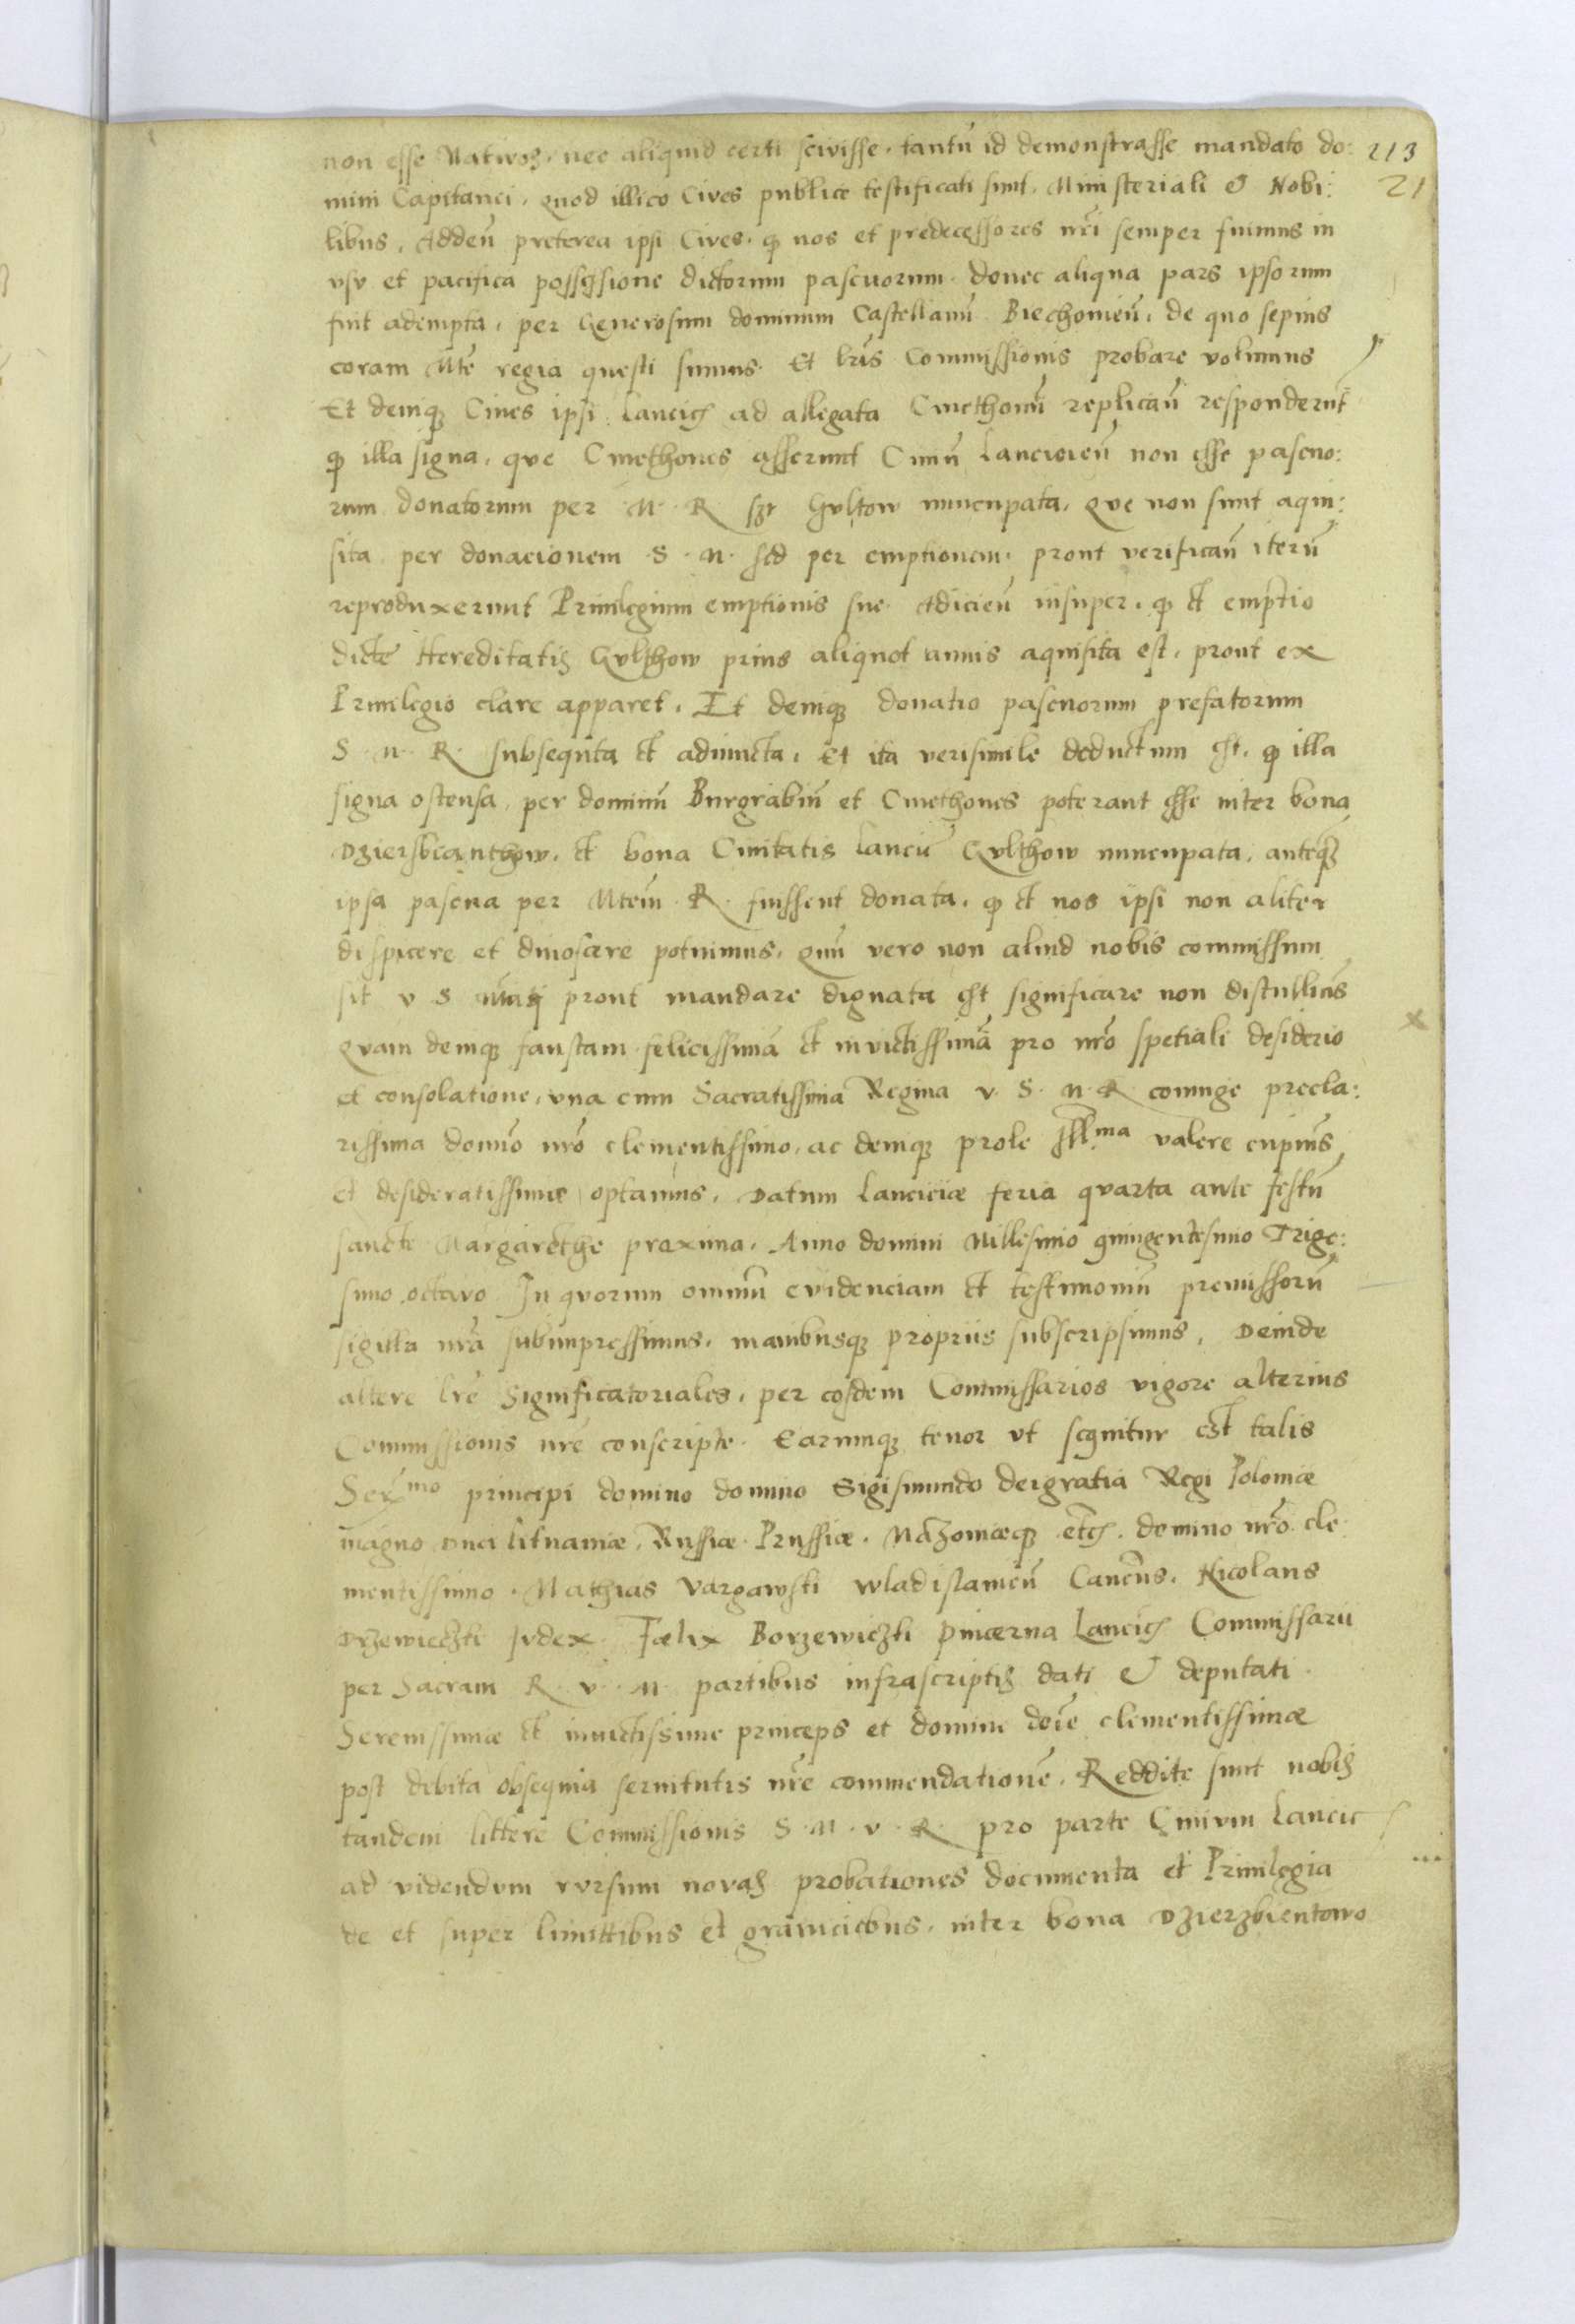 non esse Nativos, nec aliquid certi scivisse, tantũ id demonstrasse mandato do: 213
mini Capitanei, quod illico Cives publice testificati sunt, Ministeriali & Nobi: 21
libus, Addeñ preterea ipsi Cives, ꝙ nos et predecessores nr̃i semper fuimus in
vsv et pacifica possessione dictorum pascuorum, donec aliqua pars ipsorum
fuit adempta, per Generosum dominum Castellanũ Biechovieñ, de quo sepius
coram Mte regia questi sumus. Et lr̃is Commissionis probare volumus
Et deniqꝫ Cives ipsi Lancicꝭ ad allegata Cmethonũ replicañ responderũt
ꝙ illa signa, que Cmethones asserunt Civiũ Lancicieñ non esse pascuo:
rum donatorum per M. R. sꝫ Gvltow nuncupata, que non sunt aqui:
sita per donacionem S. M. sed per emptionem, prout verificañ iterũ
reproduxerunt Privilegium emptionis sue. Adicieñ insuper, ꝙ et emptio
dicte Hereditatis Gvlthow prius aliquot annis aquisita est, prout ex
Privilegio clare apparet, Et deniqꝫ donatio pascuorum prefatorum
S. M. R. subsequta et adiuncta, Et ita verisimile deductum est, ꝙ illa
signa ostensa, per dominũ Burgrabiũ et Cmethones poterant esse inter bona
Dziersbcanthow, et bona Civitatis Lancicĩ Gvlthow nuncupata, anteqꝫ
ipsa pascua per Mtem̃ R. fuissent donata, ꝙ et nos ipsi non aliter
dispicere et dinoscere potuimus, qum vero non aliud nobis commissum
sit v S prout mandare dignata est significare non distullim̃s
Qvam deniqꝫ faustam felicissimã et invictissimã pro nr̃o spetiali desiderio
et consolatione, vna cum Sacratissima Regina v. S. M. R. coniuge precla:
rissima domĩo nr̃o clementissimo, ac deniqꝫ prole Ill.ma valere cupim̃s
et desideratissime optamus, Datum Lanciciæ feria qvarta ante festũ
sancte Margarethe proxima, Anno domini Millesimo quingentesimo Trige:
simo octavo In qvorum omniũ evidenciam et testimoniũ premissorũ
sigilla nr̃a subimpressimus, manibusqꝫ propriis subscripsimus, Deinde
altere lr̃e Significatoriales, per eosdem Commissarios vigore alterius
Commissionis nr̃e conscripte. Earumqꝫ tenor vt sequitur est talis
Ser.mo principi domino domino Sigismundo deigratia Regi Poloniæ
magno Duci Lituaniæ, Russiæ Prussiæ, Mazoviæqꝫ etcꝭ. domino nr̃o cle
mentissimo. Mathias Vargawski Wladislavieñ Caneñs, Nicolaus
Drzewieczki Ivdex Fælix Borzewiczki pincerna Lancicꝭ Commissarii
per Sacram R. v. M. partibus infrascriptis dati & deputati.
Serenissimæ et invictissime princeps et domine dñe clementissimæ
post debita obsequia servitutis nr̃e commendationẽ, Reddite sunt nobis
tandem littere Commissionis S. M. v. R. pro parte Civivm Lancic
ad videndvm rvrsum novas probationes documenta et Privilegia
de et super limittibus et graniciebus, inter bona Dzierzbientowo